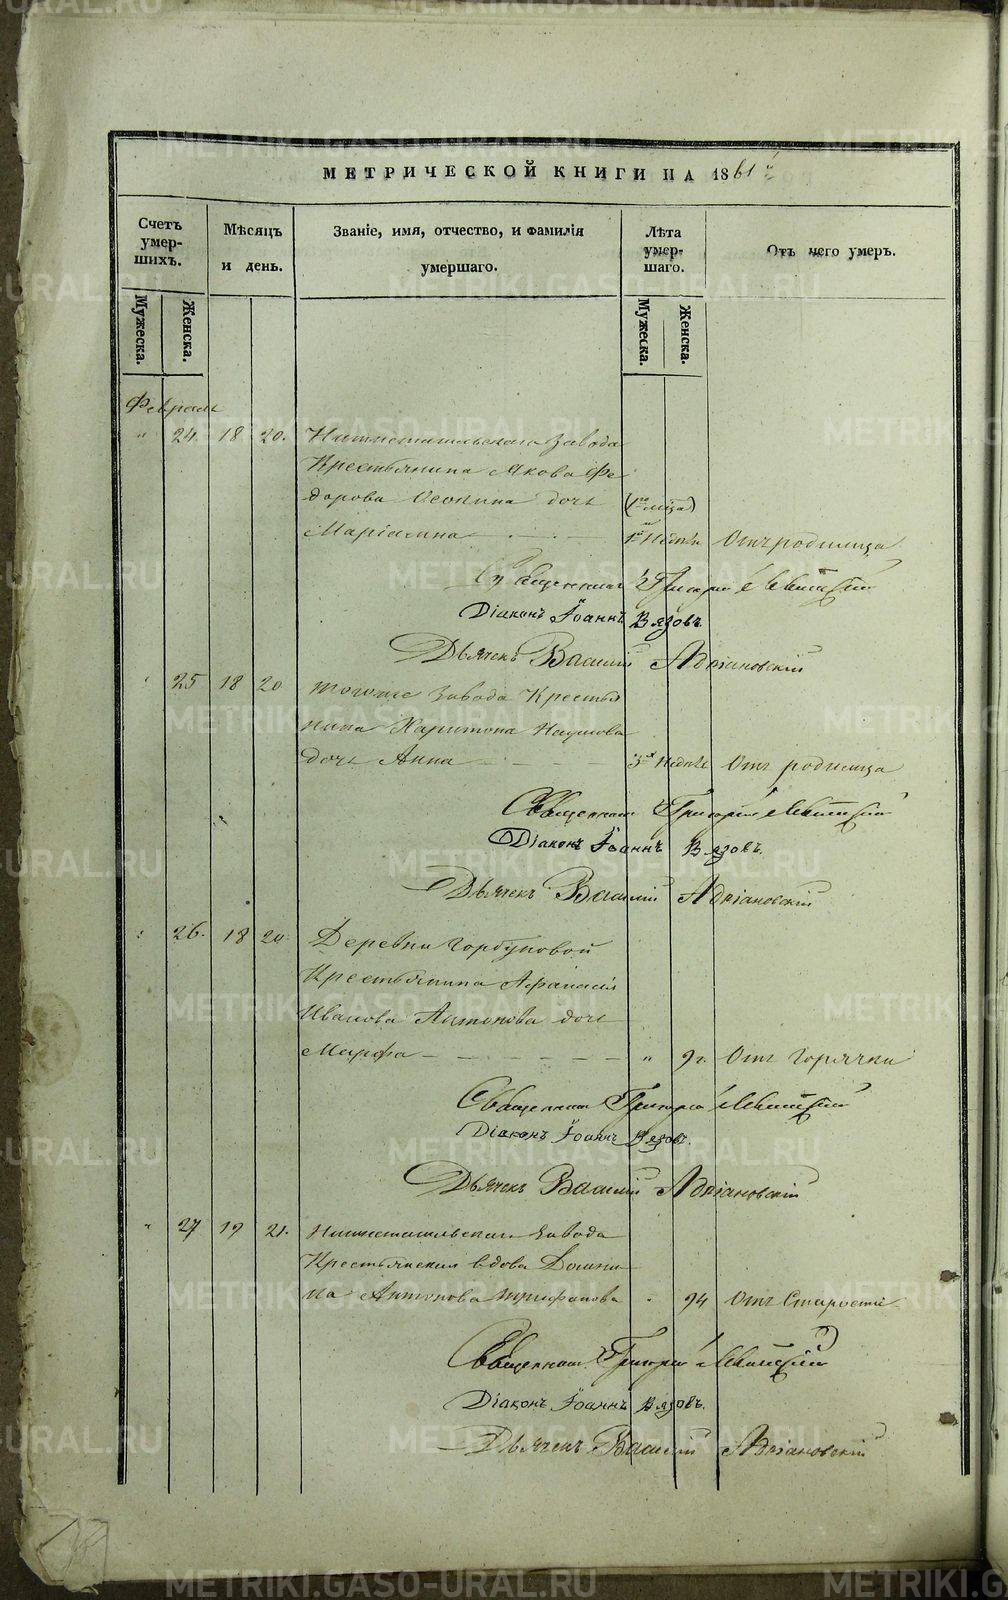 МЕТРИЧЕСКОЙ КНИГИ НА 1861й
Счетъ умер- шихъ.
Мѣсяцъ и день.
Званіе, имя, отчество, и фамилія умершаго.
Лѣта умер- шаго.
Отъ чего умеръ.
Мужеска.
Женска.
Мужеска.
Женска.
Февраль
" 24. 18 20. Нижнетагильскаго завода
Крестьянина Якова Фе-
дорова Осопина дочь
Маріамна 1й Недѣли Отъ родимца
Священникъ Григорій Левитскій
Діаконъ Іоаннъ Вязовъ.
Дьячекъ Василій Адріановскій
25 18 20 тогоже завода Крестья
нина Харитона Наумова
дочь Анна 3х Недѣль Отъ родимца
Священникъ Григорій Левитскій
Діаконъ Іоаннъ Вязовъ.
Дьячекъ Василій Адріановскій
26. 18 20 Деревни Горбуновой
Крестьянина Афанасія
Иванова Антонова дочь
Марфа " 9 г. Отъ Горячки
Священникъ Григорій Левитскій
Діаконъ Іоаннъ Вязовъ.
Дьячекъ Василій Адріановскій
" 27 19 21. Нижнетагильскаго завода
Крестьянская вдова Домни-
ка Антонова Трифанова 94 Отъ Старости
Священникъ Григорій Левитскій
Діаконъ Іоаннъ Вязовъ.
Дьячекъ Василій Адріановскій
METRIKI.GASO-URAL.RU